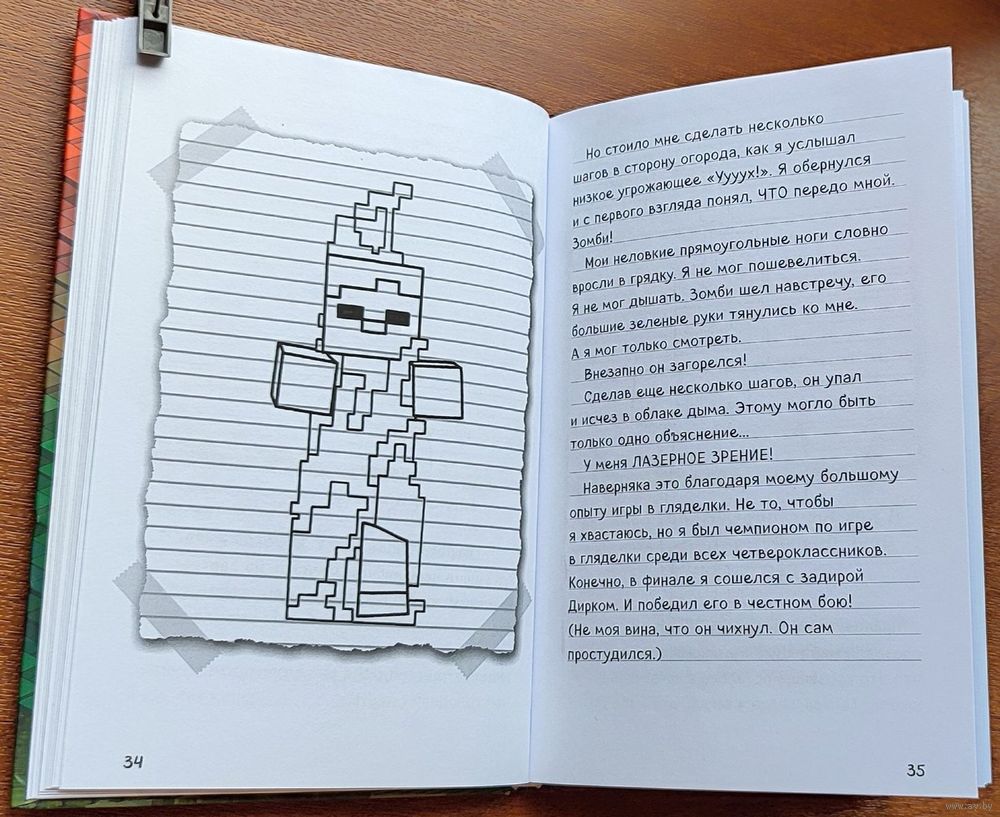 34
Но стоило мне сделать несколько
шагов в сторону огорода, как я услышал
низкое угрожающее «Уууух!». Я обернулся
и с первого взгляда понял, ЧТО передо мной.
Зомби!
Мои неловкие прямоугольные ноги словно
вросли в грядку. Я не мог пошевелиться.
Я не мог дышать. Зомби шел навстречу, его
большие зеленые руки тянулись ко мне.
А я мог только смотреть.
Внезапно он загорелся!
Сделав еще несколько шагов, он упал
и исчез в облаке дыма. Этому могло быть
только одно объяснение...
У меня ЛАЗЕРНОЕ ЗРЕНИЕ!
Наверняка это благодаря моему большому
опыту игры в гляделки. Не то, чтобы
я хвастаюсь, но я был чемпионом по игре
в гляделки среди всех четвероклассников.
Конечно, в финале я сошелся с задирой
Дирком. И победил его в честном бою!
(Не моя вина, что он чихнул. Он сам
простудился.)
35
www.ay.by